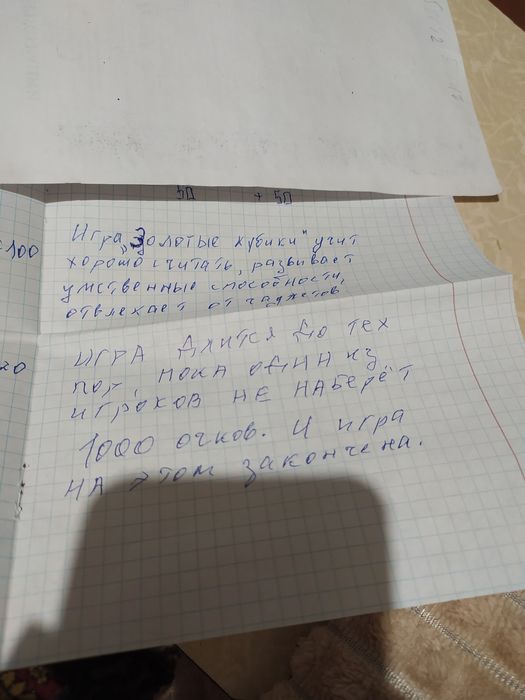 50 + 50
Игра „Золотые кубики" учит
100
хорошо считать, развивает
умственные способности,
отвлекает от гаджетов.
ИГРА ДЛИТСЯ ДО ТЕХ
20
ПОР, ПОКА ОДИН ИЗ
ИГРОКОВ НЕ НАБЕРЁТ
1000 ОЧКОВ. И ИГРА
НА ЭТОМ ЗАКОНЧЕНА.